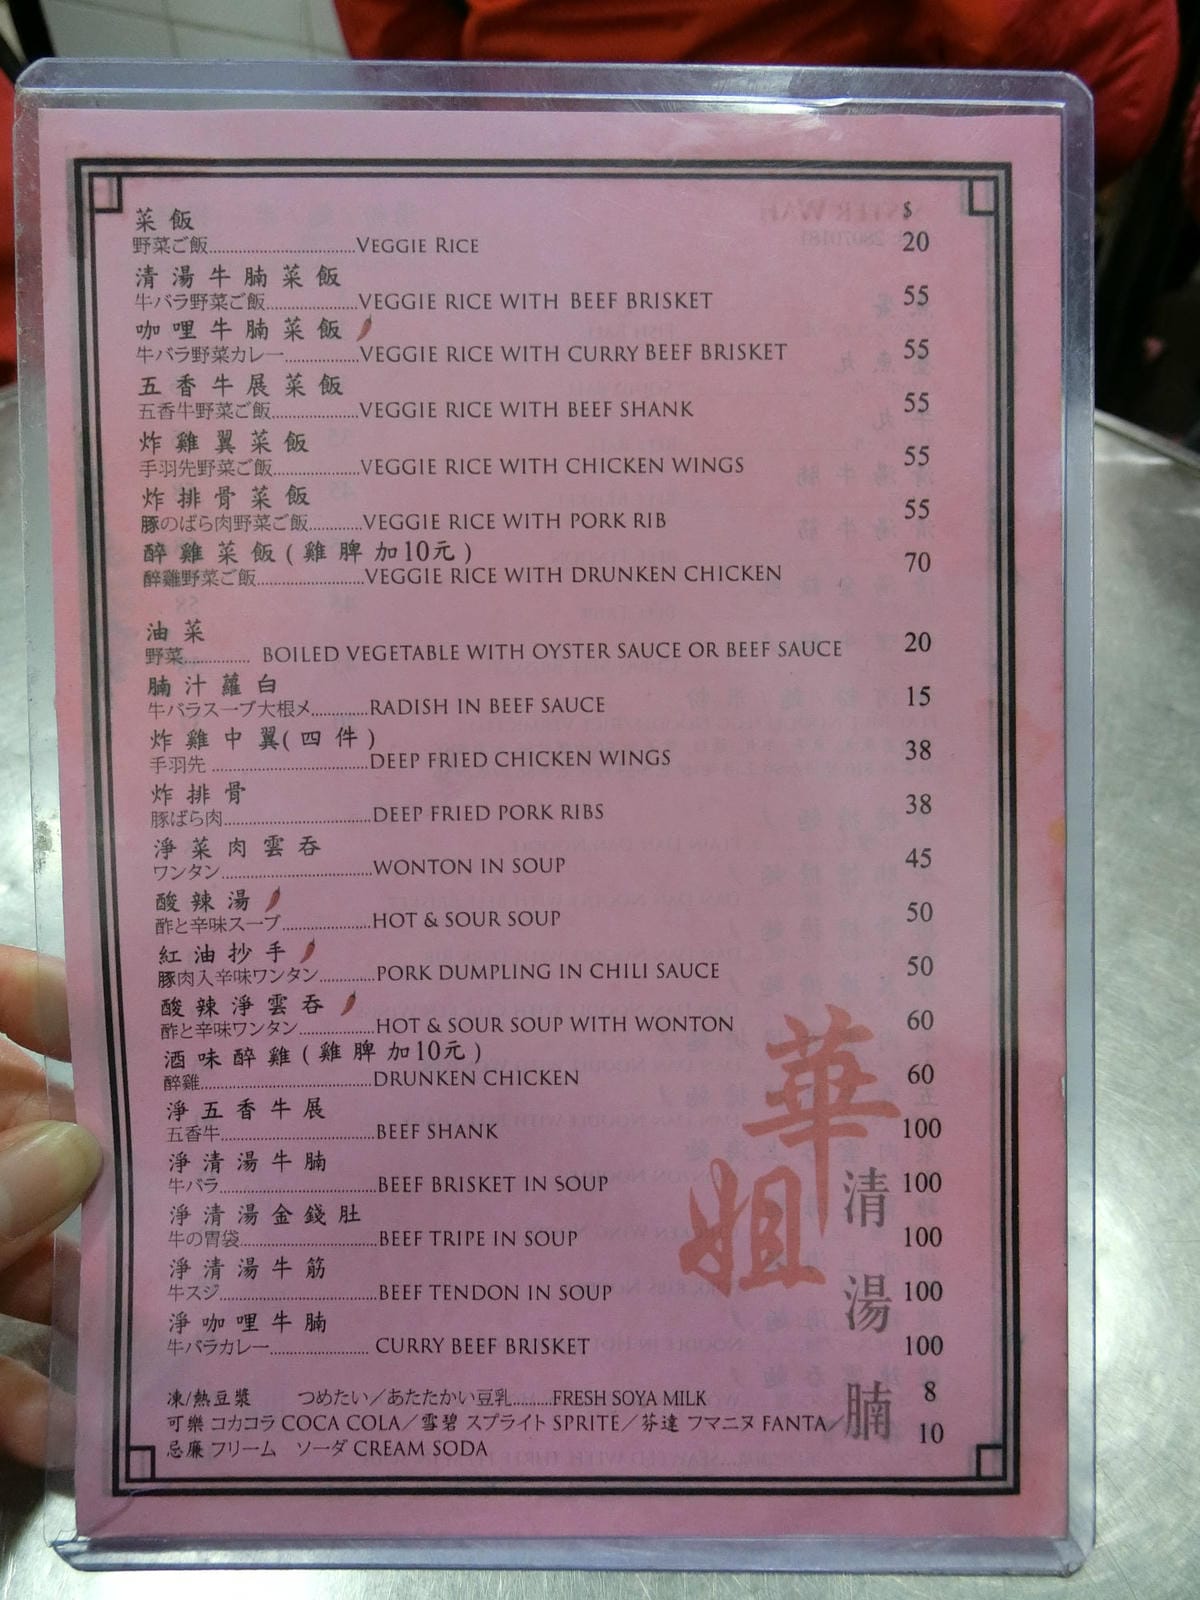 $
菜飯
野菜ご飯....................VEGGIE RICE 20
清湯牛腩菜飯
牛バラ野菜ご飯....................VEGGIE RICE WITH BEEF BRISKET 55
咖哩牛腩菜飯
牛バラ野菜カレー....................VEGGIE RICE WITH CURRY BEEF BRISKET 55
五香牛展菜飯
五香牛野菜ご飯....................VEGGIE RICE WITH BEEF SHANK 55
炸雞翼菜飯
手羽先野菜ご飯....................VEGGIE RICE WITH CHICKEN WINGS 55
炸排骨菜飯
豚のばら肉野菜ご飯....................VEGGIE RICE WITH PORK RIB 55
醉雞菜飯(雞脾加10元)
醉雞野菜ご飯....................VEGGIE RICE WITH DRUNKEN CHICKEN 70
油菜
野菜.............. BOILED VEGETABLE WITH OYSTER SAUCE OR BEEF SAUCE 20
腩汁蘿白
牛バラスープ大根メ....................RADISH IN BEEF SAUCE 15
炸雞中翼(四件)
手羽先....................DEEP FRIED CHICKEN WINGS 38
炸排骨
豚ばら肉....................DEEP FRIED PORK RIBS 38
淨菜肉雲吞
ワンタン....................WONTON IN SOUP 45
酸辣湯
酢と辛味スープ....................HOT & SOUR SOUP 50
紅油抄手
豚肉入辛味ワンタン....................PORK DUMPLING IN CHILI SAUCE 50
酸辣淨雲吞
酢と辛味ワンタン....................HOT & SOUR SOUP WITH WONTON 60
酒味醉雞(雞脾加10元)
醉雞....................DRUNKEN CHICKEN 60
淨五香牛展
五香牛....................BEEF SHANK 100
淨清湯牛腩
牛バラ....................BEEF BRISKET IN SOUP 100
淨清湯金錢肚
牛の胃袋....................BEEF TRIPE IN SOUP 100
淨清湯牛筋
牛スジ....................BEEF TENDON IN SOUP 100
淨咖哩牛腩
牛バラカレー.................... CURRY BEEF BRISKET 100
凍/熱豆漿 つめたい／あたたかい豆乳..........FRESH SOYA MILK 8
可樂 コカコラ COCA COLA／雪碧 スプライト SPRITE／芬達 フマニヌ FANTA／ 10
忌廉 フリーム ソーダ CREAM SODA
華姐
清湯腩